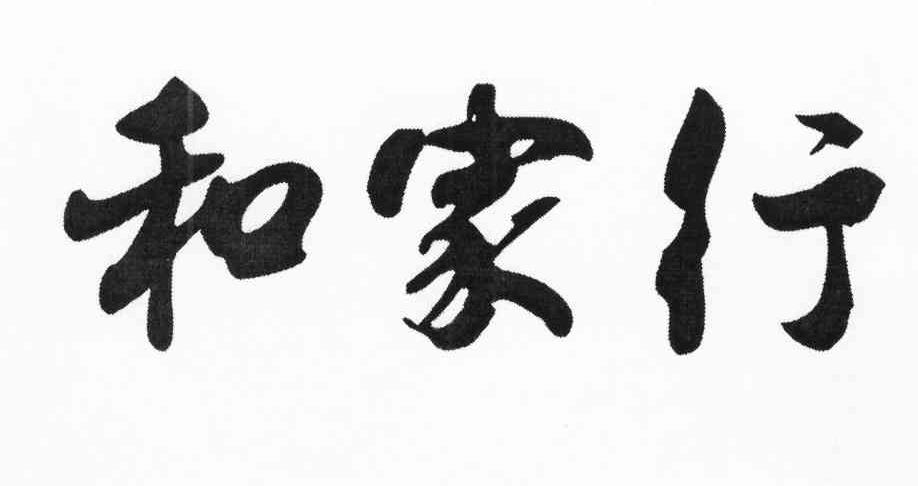 和家行